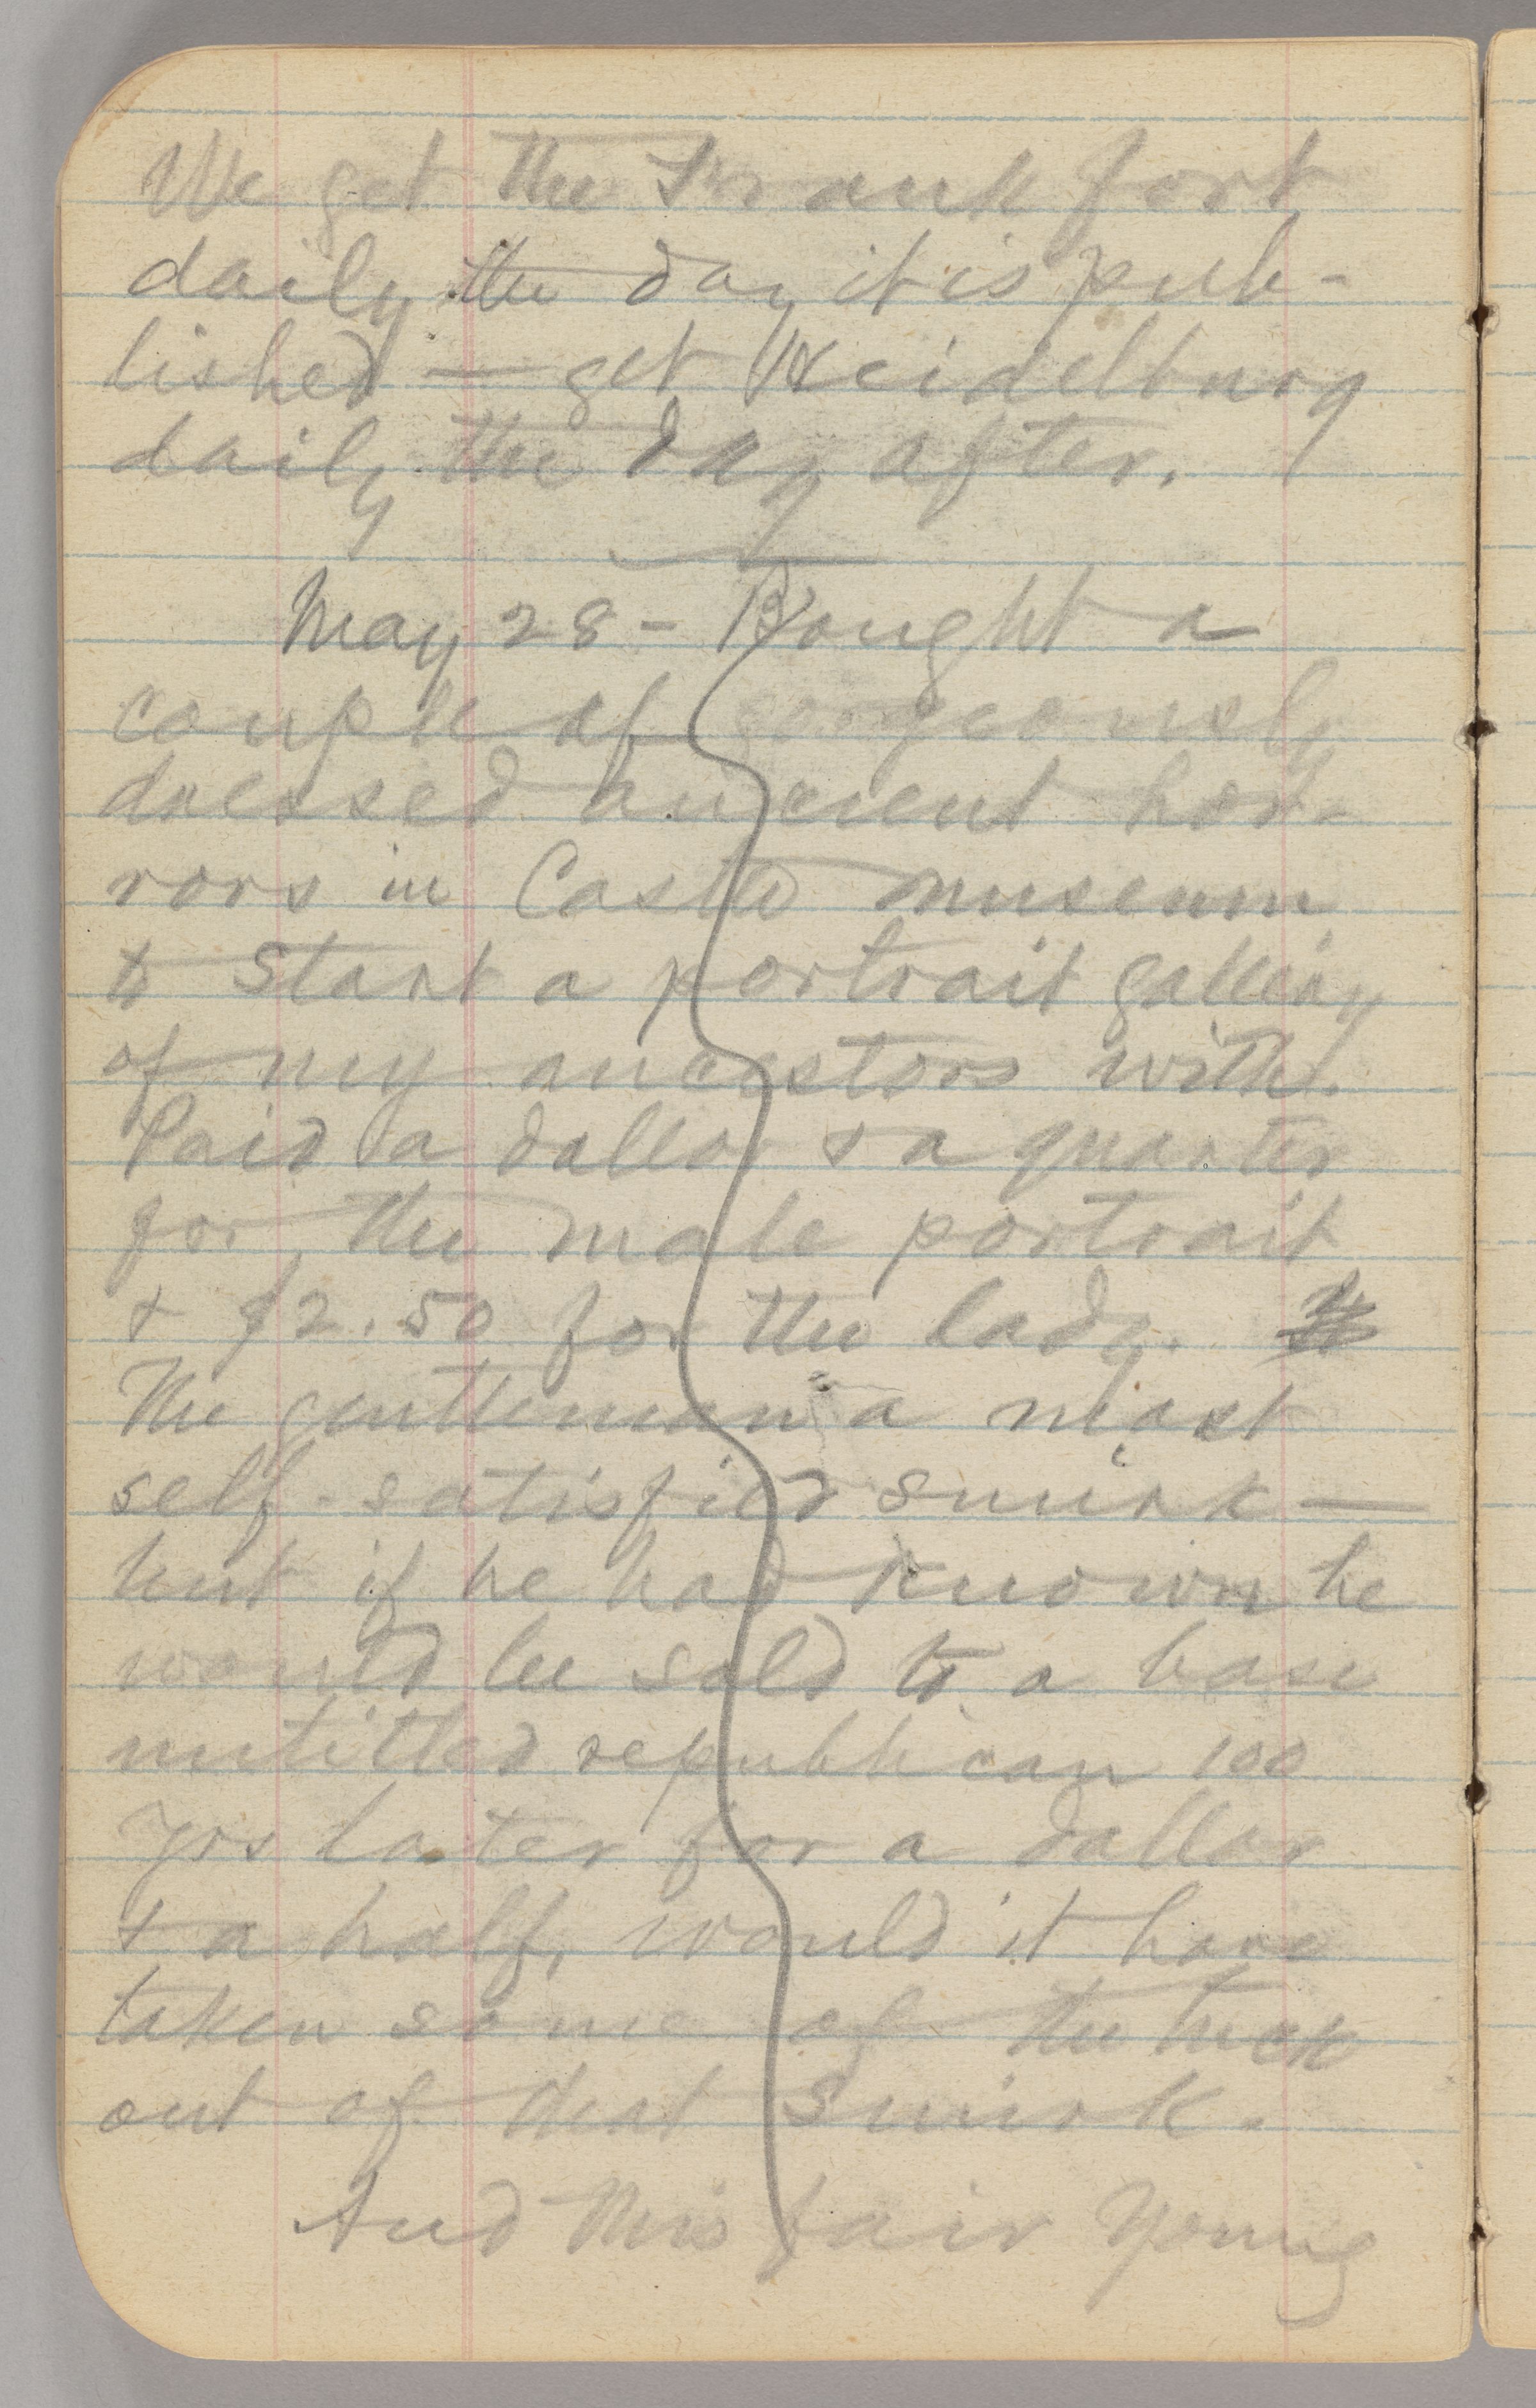 We get the Frankfort
daily the day it is pub-
lished — get Heidelburg
daily the day after.
May 28 - Bought a
couple of gorgeously
dressed ancient hor-
rors in Castle museum
to start a portrait gallery
of my ancestors with.
Paid a dollar & a quarter
for the male portrait
& $2.50 for the lady.
The gentleman a most
self-satisfied smirk —
but if he had known he
would be sold to a base
untitled republican 100
yrs later for a dollar
& a half, would it have
taken some of the tuck
out of that smirk.
And this fair young